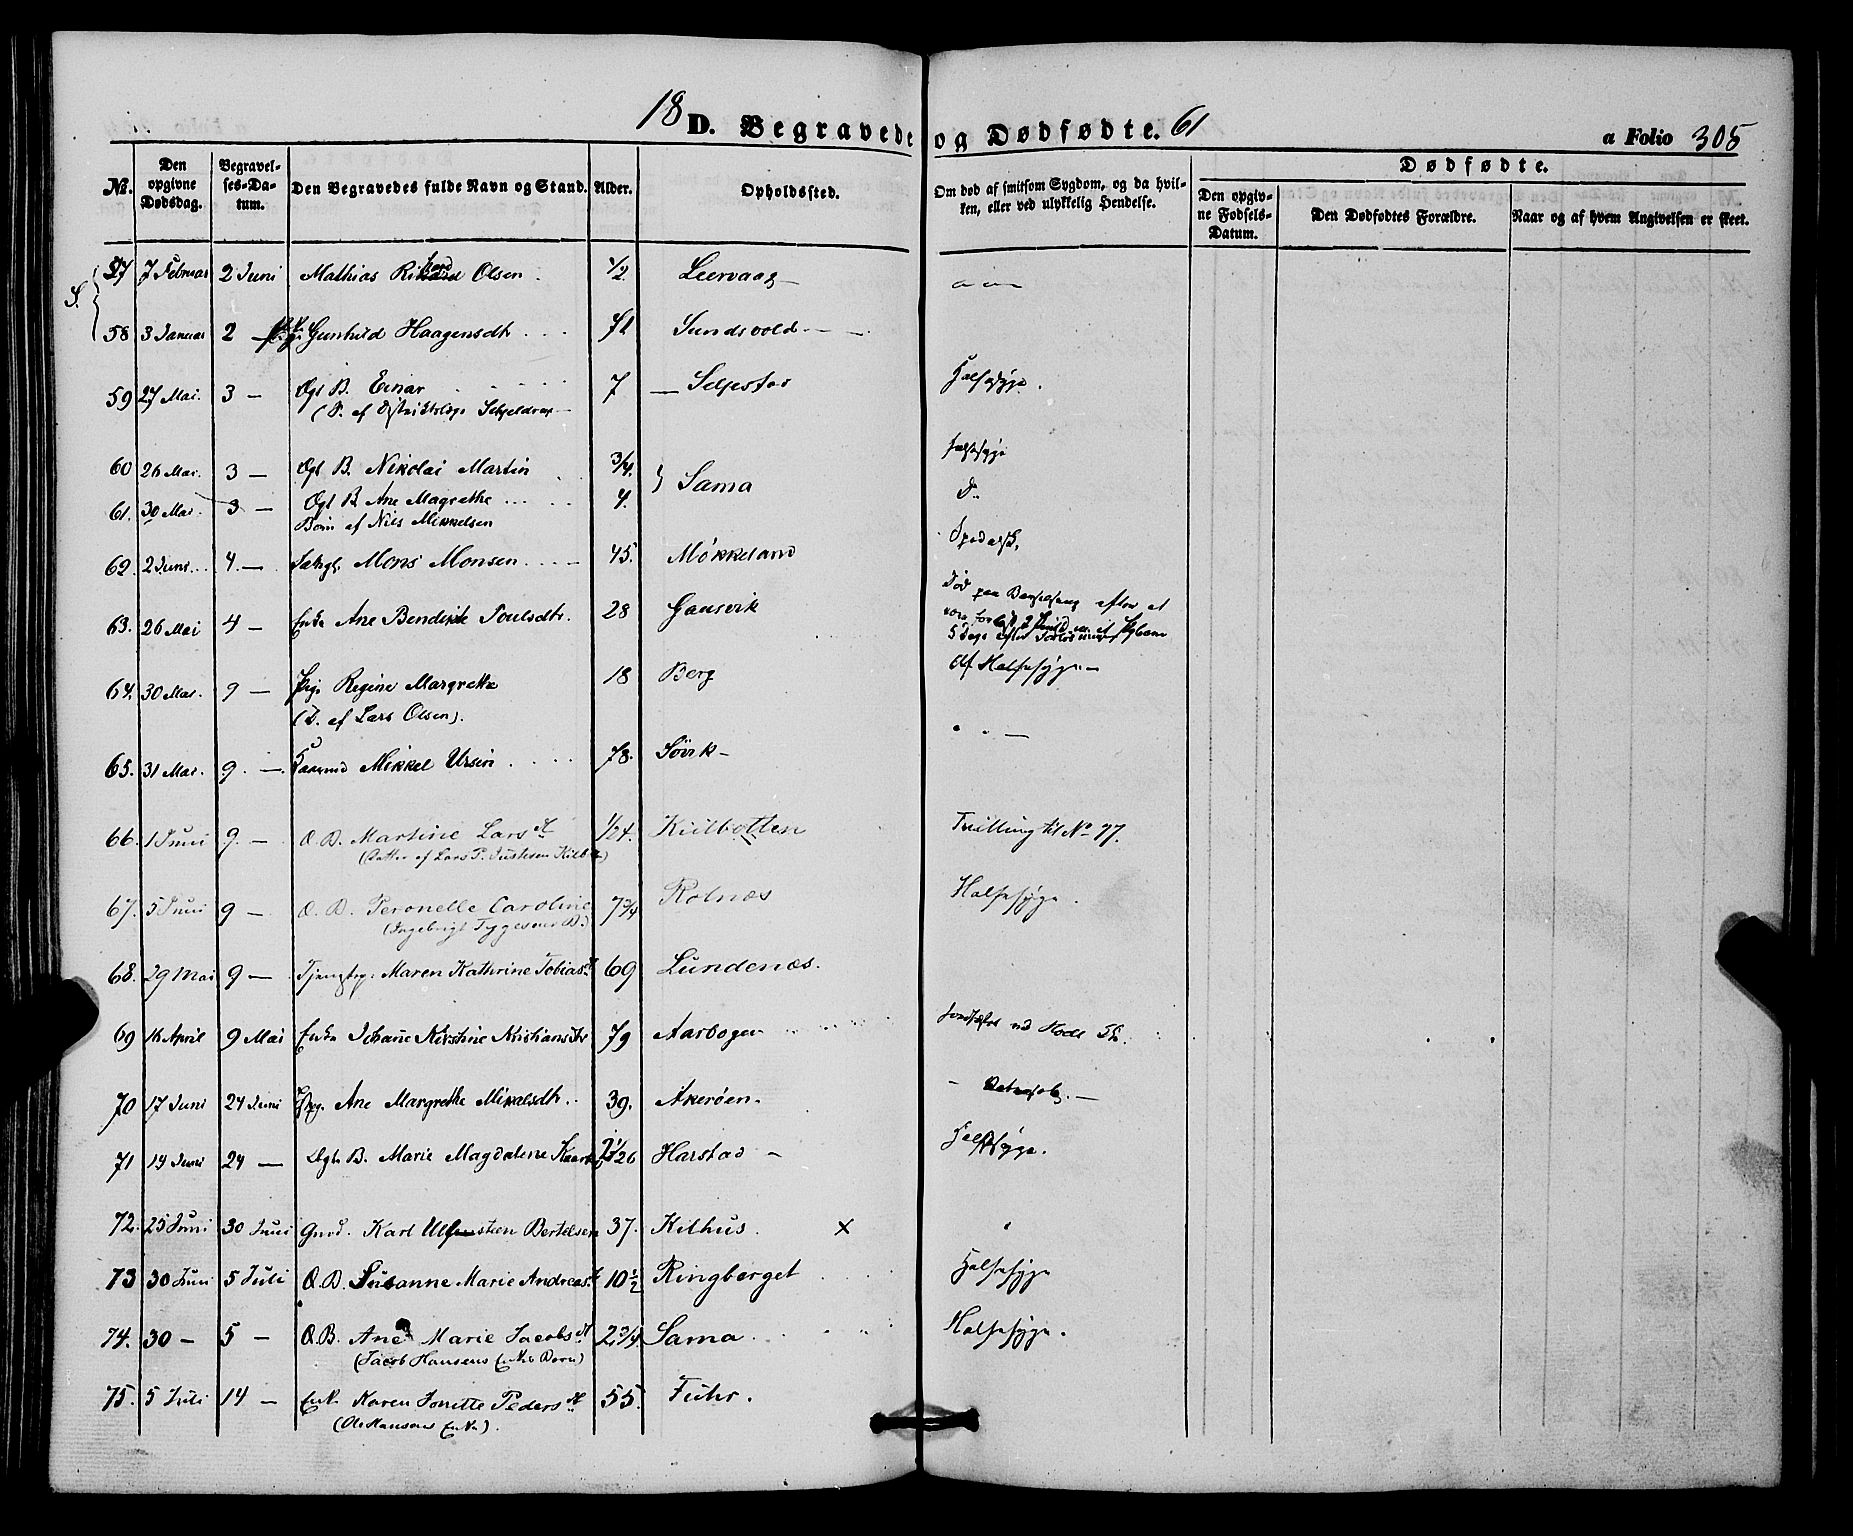 18 D. Begravede og Dødfødte. 61
a Folio 305
No.
Den opgivne Dødsdag.
Begravelses-Datum.
Den Begravedes fulde Navn og Stand.
Alder.
Opholdssted.
Om død af smitsom Sygdom, og da hvilken, eller ved ulykkelig Hendelse.
Dødfødte.
Den opgivne Fødsels-Datum.
Den Dødfødtes Forældre.
Naar og af hvem Angivelsen er skeet.
S.
57 7 Februar 2 Juni Mathias Rikhard Olsen 1/2 Leervaag
58 3 Januar 2 — Gunhild Haagensdtr 71 Sundsvold
59 27 Mai. 3 — Ægt B. Einar 7 — Selpstad Halssyge.
60 26 Mai. 3 — Ægt B. Nikolai Martin 3/4. Sama Halssyge
61. 30 Mai. 3 — Ægt B. Ane Magrethe 4. D.
Børn af Niels Mikkelsen
62. 2 Juni 4. — Mons Monsen 45. Møkkeland Spedalsk.
63. 26 Mai 4 — Enke Ane Bendikte Poulsdtr. 28 Gausvik Død paa Barselseng efter at
64. 30 Mai. 9 — Pige Regine Margrethe 18 Berg af Halsesyge —
(D. af Lars Olsen).
65. 31 Mai. 9. — Mikkel Ursin 78. Sørvik —
66. 1 Juni 9. — Æ. B. Martine Larsdt 1/24. Kiilbotten Tvilling til No 77.
(Datter af Lars P. Justesen Kilb.)
67. 5 Juni 9 — Æ. B. Peronelle Caroline 7 3/4 Rolnæs Halsesyge.
(Ingebrigt Tyggesens B.)
68. 29 Mai 9 — Maren Kathrine Tobiasdt 69 Lundenæs.
69 16 April 9 Mai Enke Johane Kirstine Kristiansdtr 79 Aarbogen
70 17 Juni 24 Juni Ane Margrethe Mikalsdtr. 39. Akerøen.
71 19 Juni 24 — Ægt. B. Marie Magdalene 1/26 Harstad — Halssyge.
72. 25 Juni 30 Juni Gmd. Karl Bertelsen 37. Kilhus. X
73 30 Juni 5 Juli Æ. B. Susanne Marie Andreasdt 10 1/2 Ringberget Halsesyge
74. 30 — 5 — Æ. B. Ane Marie Jacobsdt 2 3/4 Sama Halsesyge.
(Jacob Hansens Enkes Barn)
75. 5 Juli 14 — Enke Karen Jonette Pedersdt 55. Fuhr.
(Ole Hansens Enke).